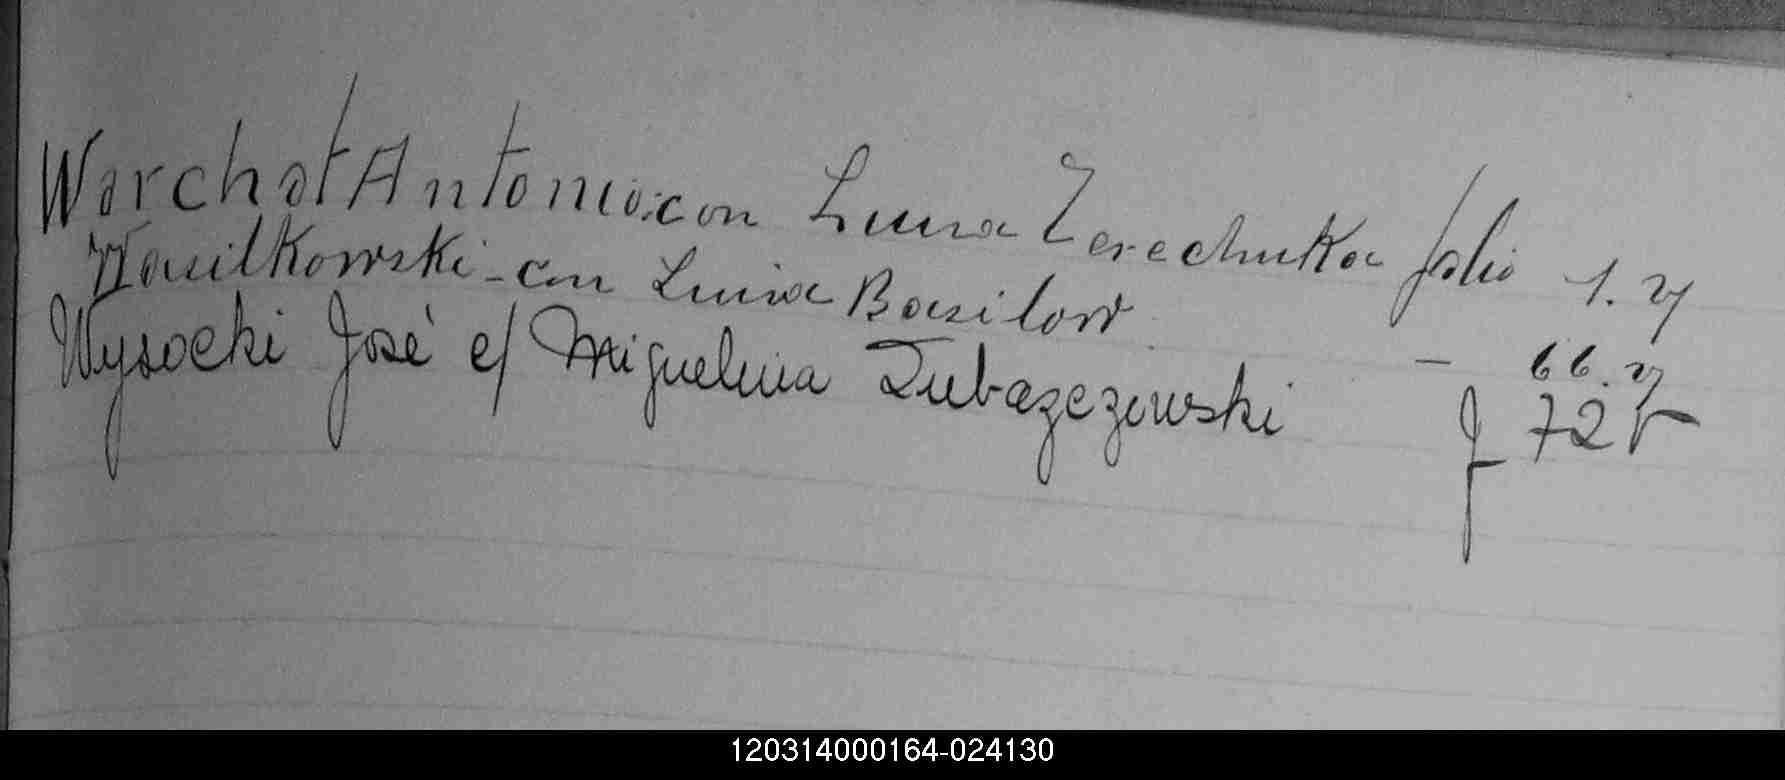 Warchoł Antonio con Luisa Zerechuka folio 1. v
Wasilkowski - con Luisa Basilow - 66. v
Wysocki José c/ Miguelina Lubazezewski f 72 v
120314000164-024130